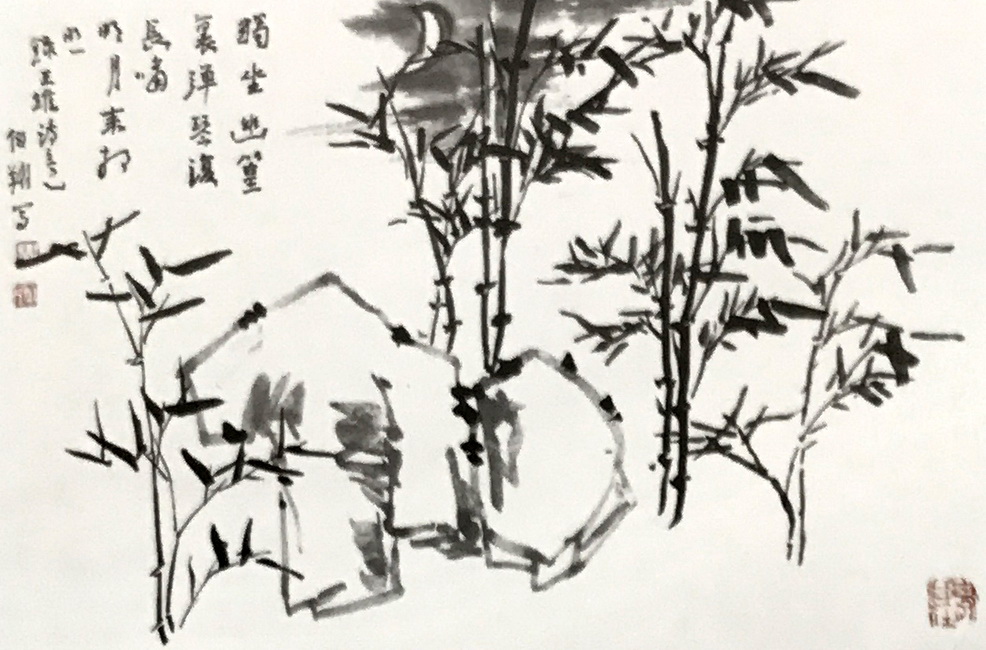 獨坐幽篁
裏彈琴復
長嘯
明月來相
照
王維詩意
伯翔写